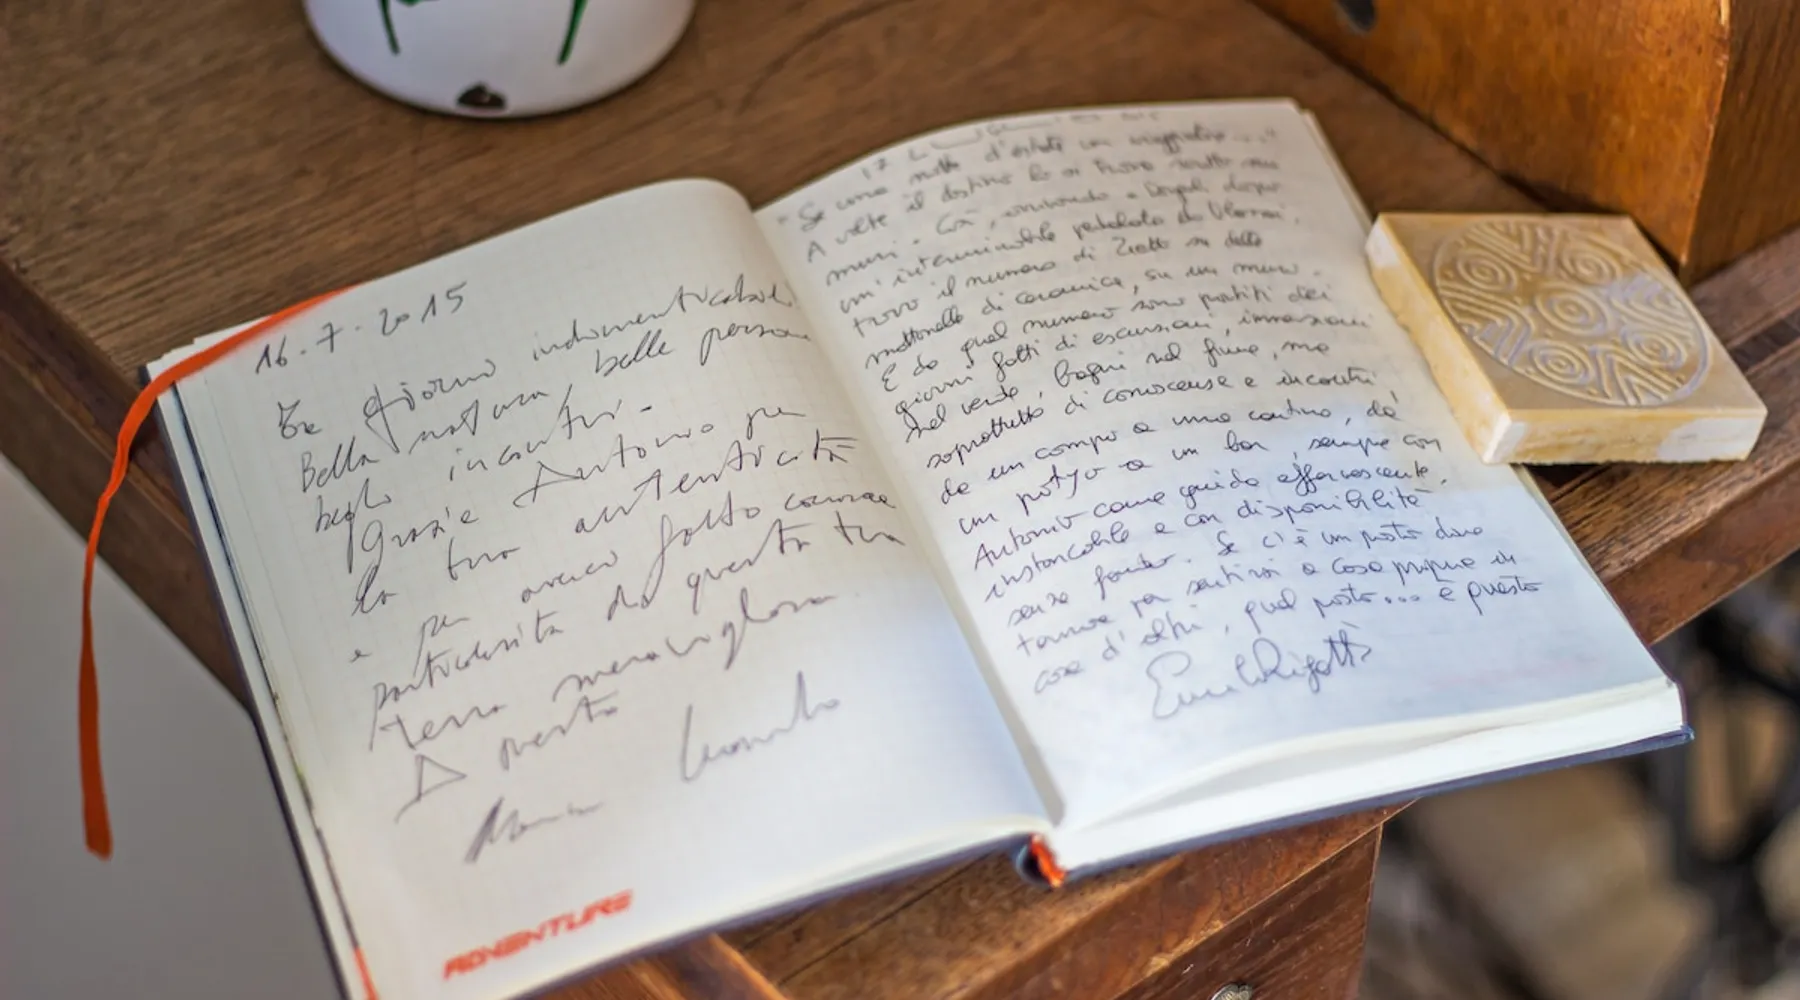 16.7.2015
Tre giorni indimenticabili
Bella natura, belle persone
begli incontri.
Grazie Antonio per
la tua autenticità
e per averci fatto conoscere
particolarità di questa tua
terra meravigliosa.
A presto
Leonardo
ADVENTURE
"Se una notte d'estate un viaggiatore..."
A volte il destino lo si trova scritto sui
muri. Così, arrivando a Dorgali dopo
un'interminabile pedalata da
trovo il numero di su delle
mattonelle di ceramica, su un muro.
E da quel numero sono partiti dei
giorni fatti di escursioni, immersioni
nel verde, bagni nel fiume, ma
soprattutto di conoscenze e incontri,
da un campo a una cantina, da
un pozzo a un bar, sempre con
Antonio come guida effervescente,
instancabile e con disponibilità
senza fondo. Se c'è un posto dove
tornare per sentirsi a casa proprio in
casa d'altri, quel posto... è questo